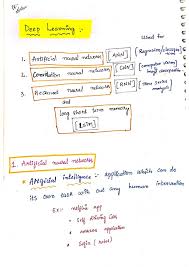 Deep Learning :-
Used for
1. Artificial neural network [ANN] [Regression/classifier]
2. Convolution neural network [CNN] [computer vision/ image
3. Recurrent neural network [RNN]
and
long short term memory
[LSTM]
1. Artificial neural network
* Artificial intelligence :- application which can do
its own task with out any human intervention
Ex:- netflix app
* Self driving cars
* amazon application
* Sofia (robot)